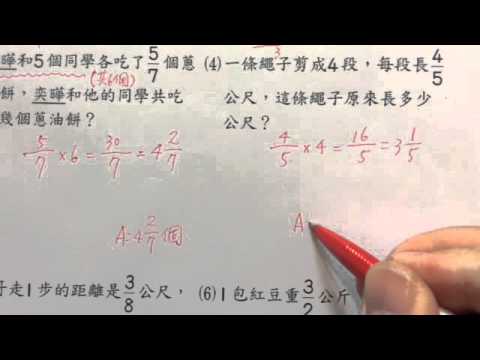 曄和5個同學各吃了5/7個蔥
(共6個)
餅，奕曄和他的同學共吃
幾個蔥油餅？
5/7×6=30/7=4 2/7
A:4 2/7個
(4)一條繩子剪成4段，每段長4/5
公尺，這條繩子原來長多少
公尺？
4/5×4=16/5=3 1/5
A
走1步的距離是3/8公尺，
(6)1包紅豆重3/2公斤